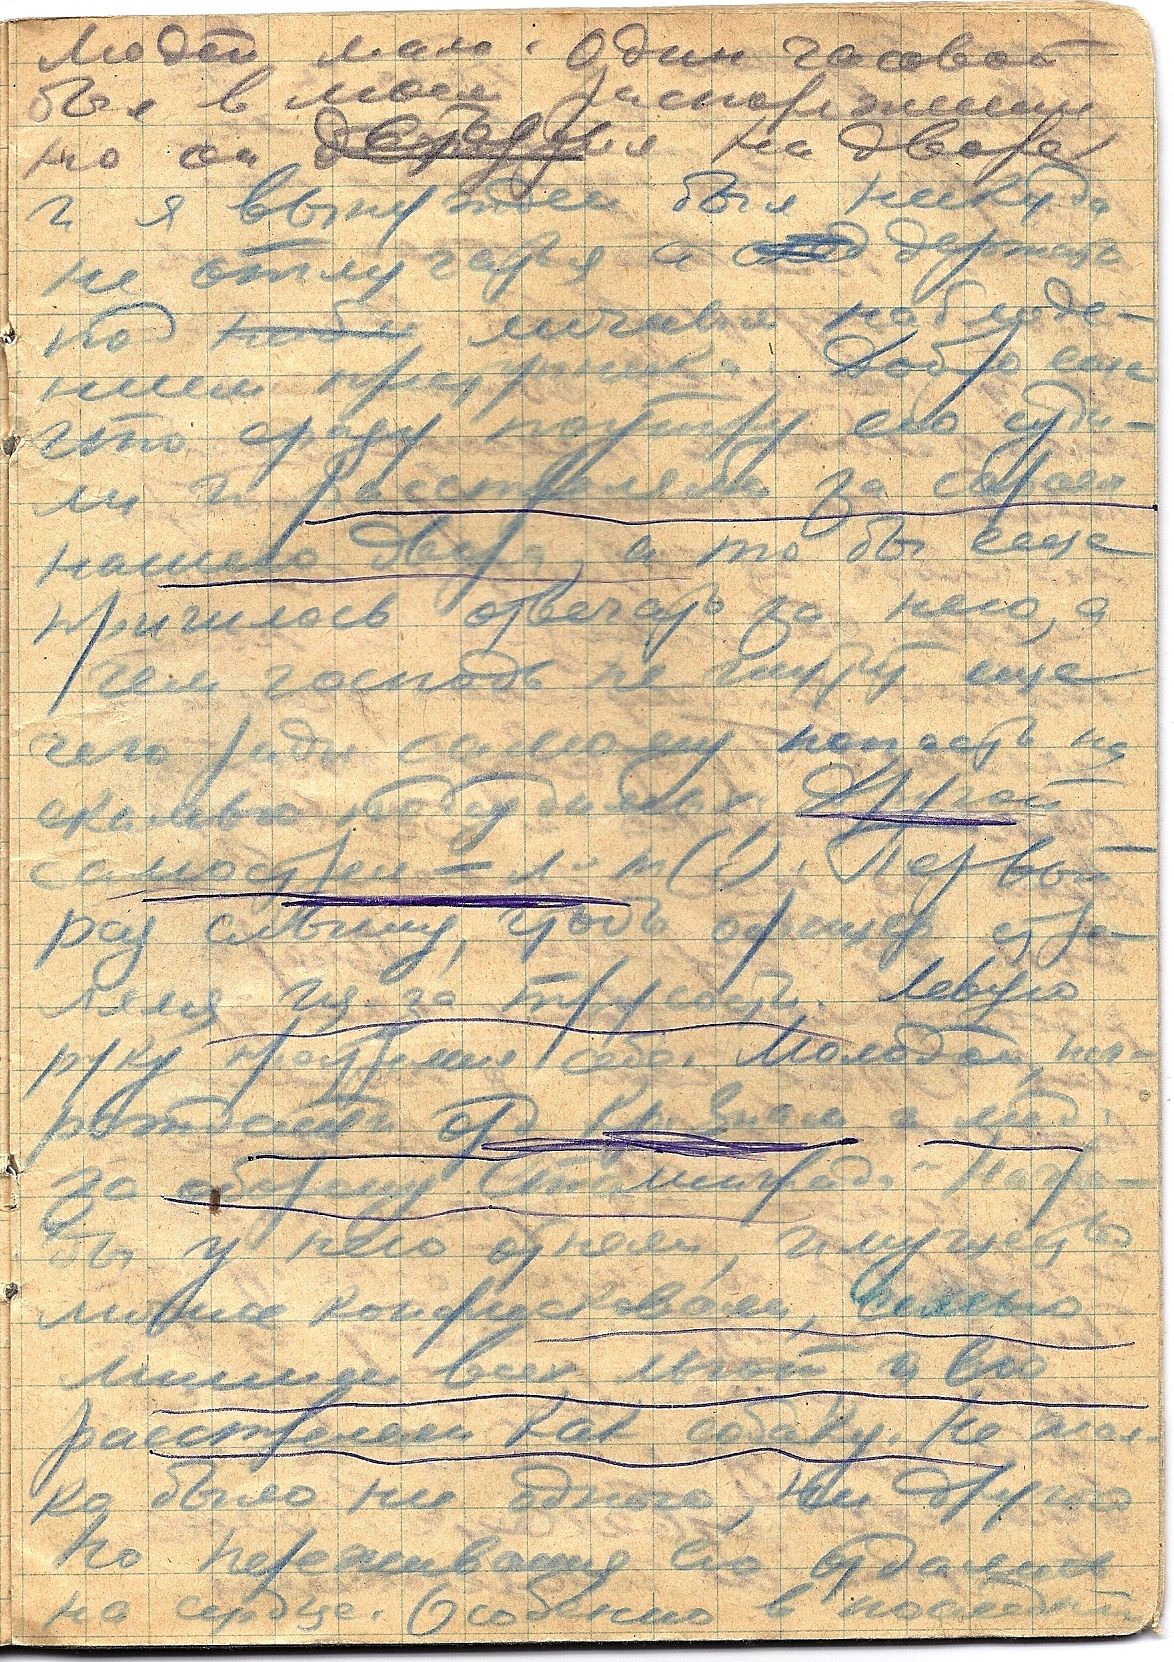 людей мало. Один часовой
был в моем распоряжении
но он дежурил на дворе
и я вынужден был никуда
не отлучаться а держать
под личным наблюде-
нием преступника. Хорошо еще
что сразу поутру его суди-
ли и расстреляли за сараем
нашего двора, а то бы еще
пришлось отвечать за него, а
чем господь не шутит еще
чего ради самому попасть на
скамью подсудимых. Другой
самострел – л-т К(?). Первый
раз слышу, чтоб офицер стре-
лялся из за трусости. Левую
руку прострелил себе. Молодой, на-
гражден орд. Кр. Знам. и мед.
за оборону Сталинграда. Награ-
ды у него отняли, имущество
личное конфисковали, семью
лишили всех льгот и его
расстреляли как собаку. Не жал-
ко было ни одного, ни другого
но переживания его отдались
на сердце. Особенно в последний